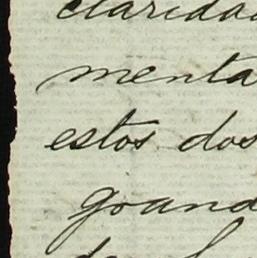 claridad
menta
estos dos
grand